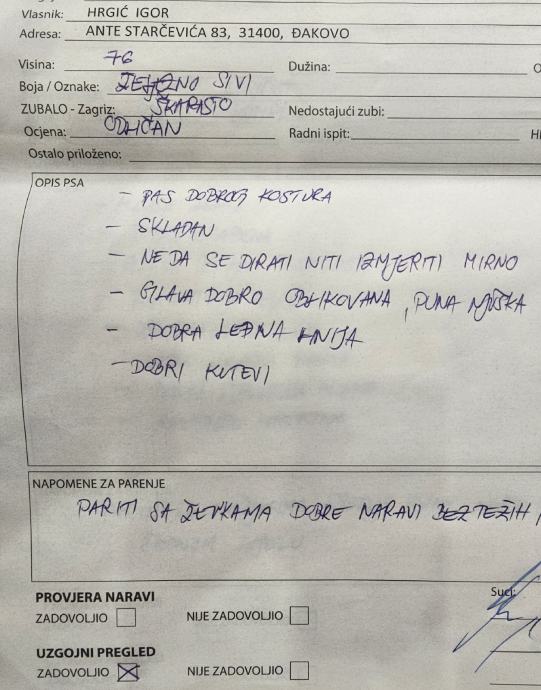 Vlasnik: HRGIĆ IGOR
Adresa: ANTE STARČEVIĆA 83, 31400, ĐAKOVO
Visina: 76 Dužina:
Boja / Oznake: ŽELJEZNO SIVI
ZUBALO - Zagriz: ŠKARASTO Nedostajući zubi:
Ocjena: ODLIČAN Radni ispit:
Ostalo priloženo:
OPIS PSA
- PAS DOBROG KOSTURA
- SKLADAN
- NE DA SE DIRATI NITI IZMJERITI MIRNO
- GLAVA DOBRO OBLIKOVANA, PUNA NJUŠKA
- DOBRA LEĐNA LINIJA
- DOBRI KUTEVI
NAPOMENE ZA PARENJE
PARITI SA ŽENKAMA DOBRE NARAVI BEZ TEŽIH
PROVJERA NARAVI
ZADOVOLJIO NIJE ZADOVOLJIO
Suci:
UZGOJNI PREGLED
ZADOVOLJIO NIJE ZADOVOLJIO